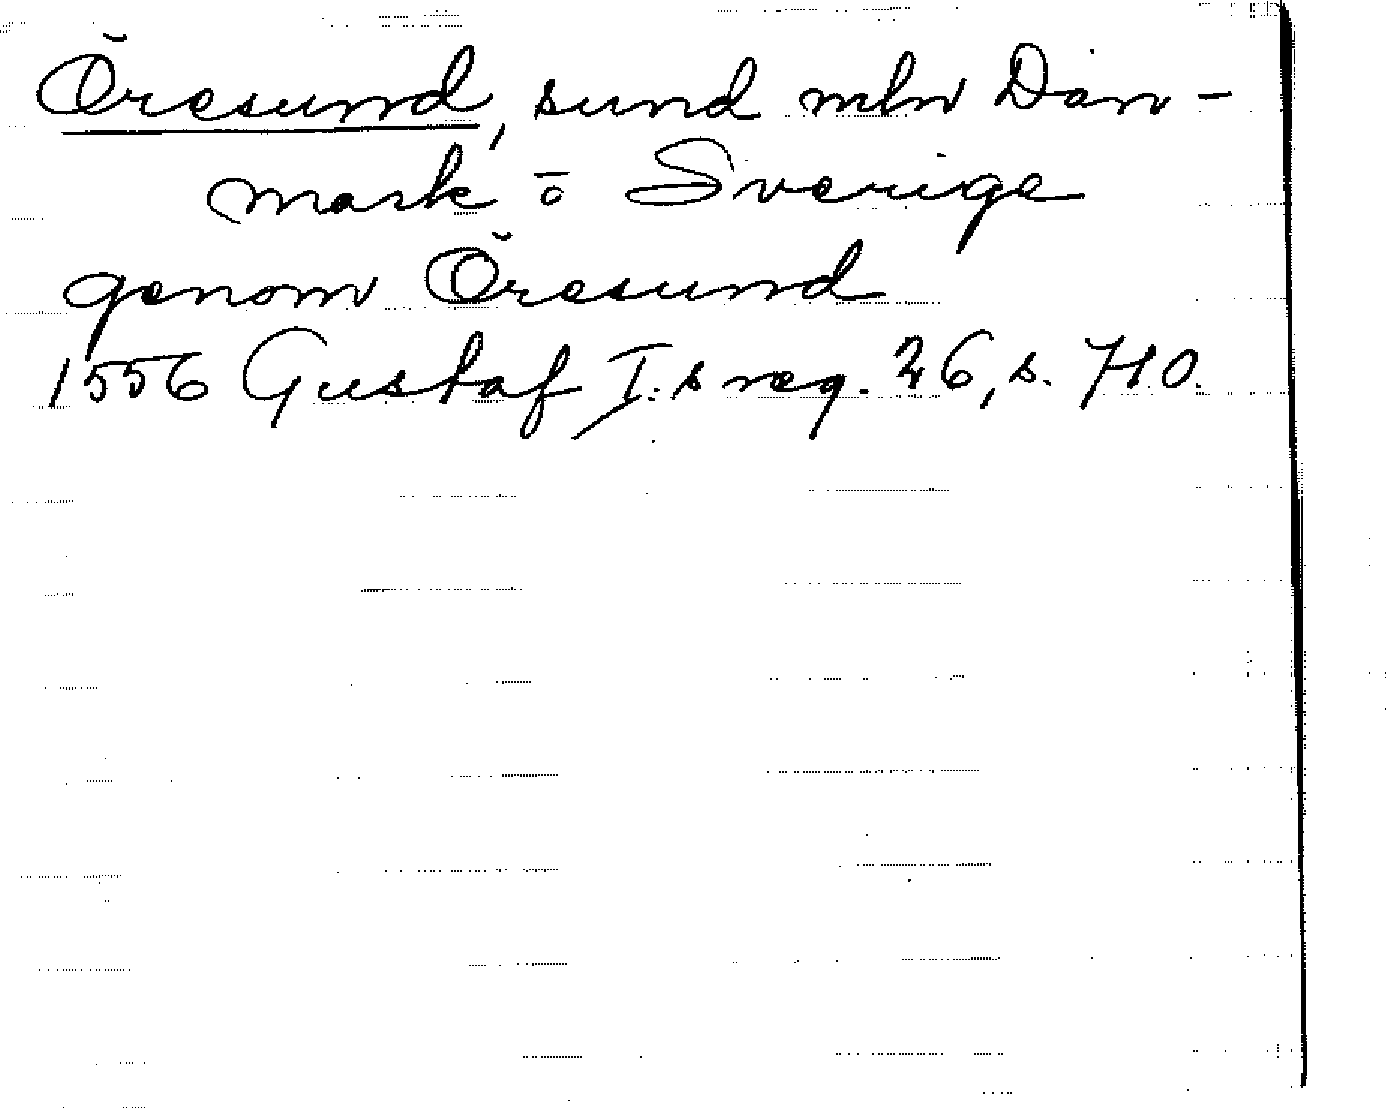 Öresund, sund mln Dan-
mark ō Sverige
genom Öresund
1556 Gustaf I:s reg. 26, s. 710.